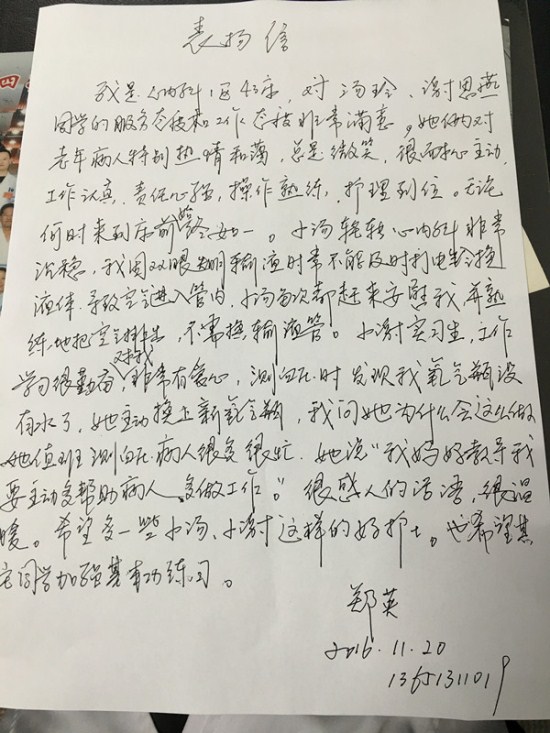 表扬信
我是心内科1区43床,对汤玲、谢恩燕
同学的服务态度和工作态度非常满意。她俩对
老年病人特别热情和蔼,总是微笑,很耐心主动,
工作认真,责任心强,操作熟练,护理到位。无论
何时来到床前始终如一。小汤轮转心内科非常
沉稳,我因双眼失明输液时常不能及时打电铃换
液体,导致空气进入管内,小汤每次都赶来安慰我,并熟
练地把空气排出,不需换输液管。小谢实习生,工作
学习很勤奋,对我非常有爱心,测血压时发现我氧气瓶没
有水了,她主动换上新氧气瓶,我问她为什么会这么做
她值班测血压病人很多很忙.她说“我妈妈教导我
要主动多帮助病人,多做工作。”很感人的话语,很温
暖。希望多一些小汤、小谢这样的好护士。也希望其
它同学加强基本功练习。
郑英
2016.11.20
13651311019